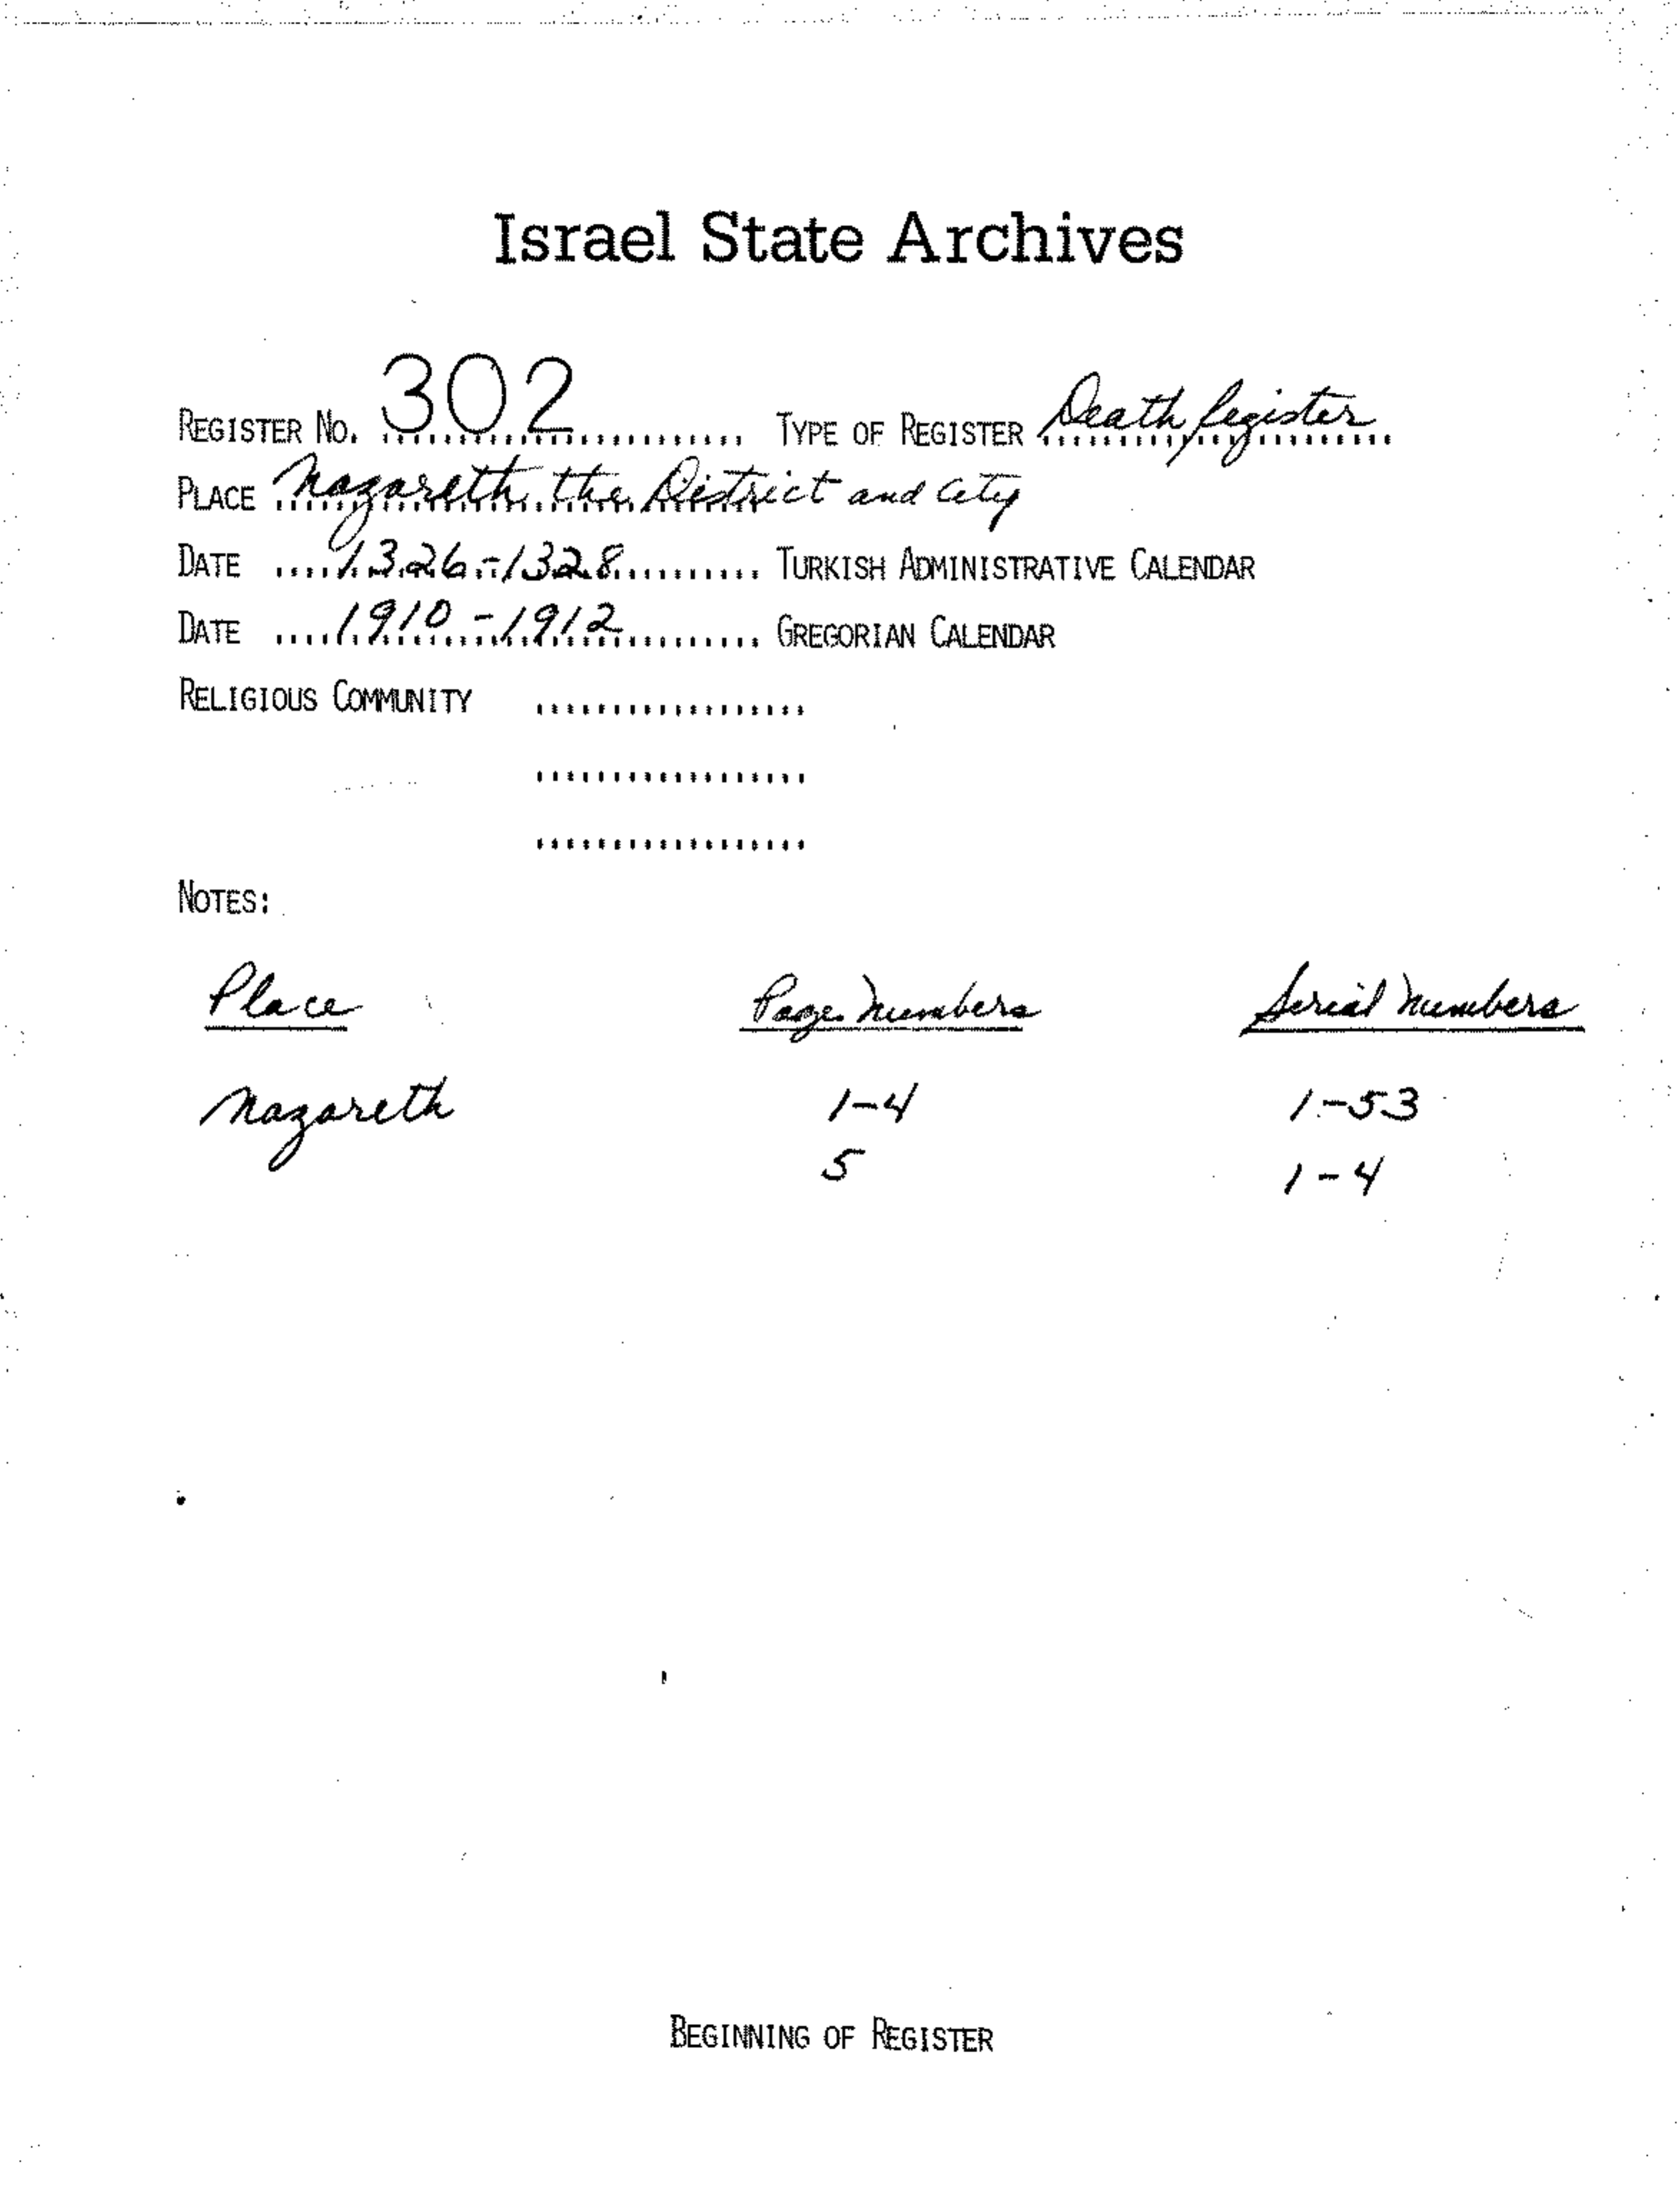 Israel State Archives
REGISTER NO. 302 TYPE OF REGISTER Death Register
PLACE Nazareth the District and City
DATE 1326-1328 TURKISH ADMINISTRATIVE CALENDAR
DATE 1910-1912 GREGORIAN CALENDAR
RELIGIOUS COMMUNITY
NOTES:
Place Page Numbers Serial Numbers
Nazareth 1-4 1-53
5 1-4
BEGINNING OF REGISTER